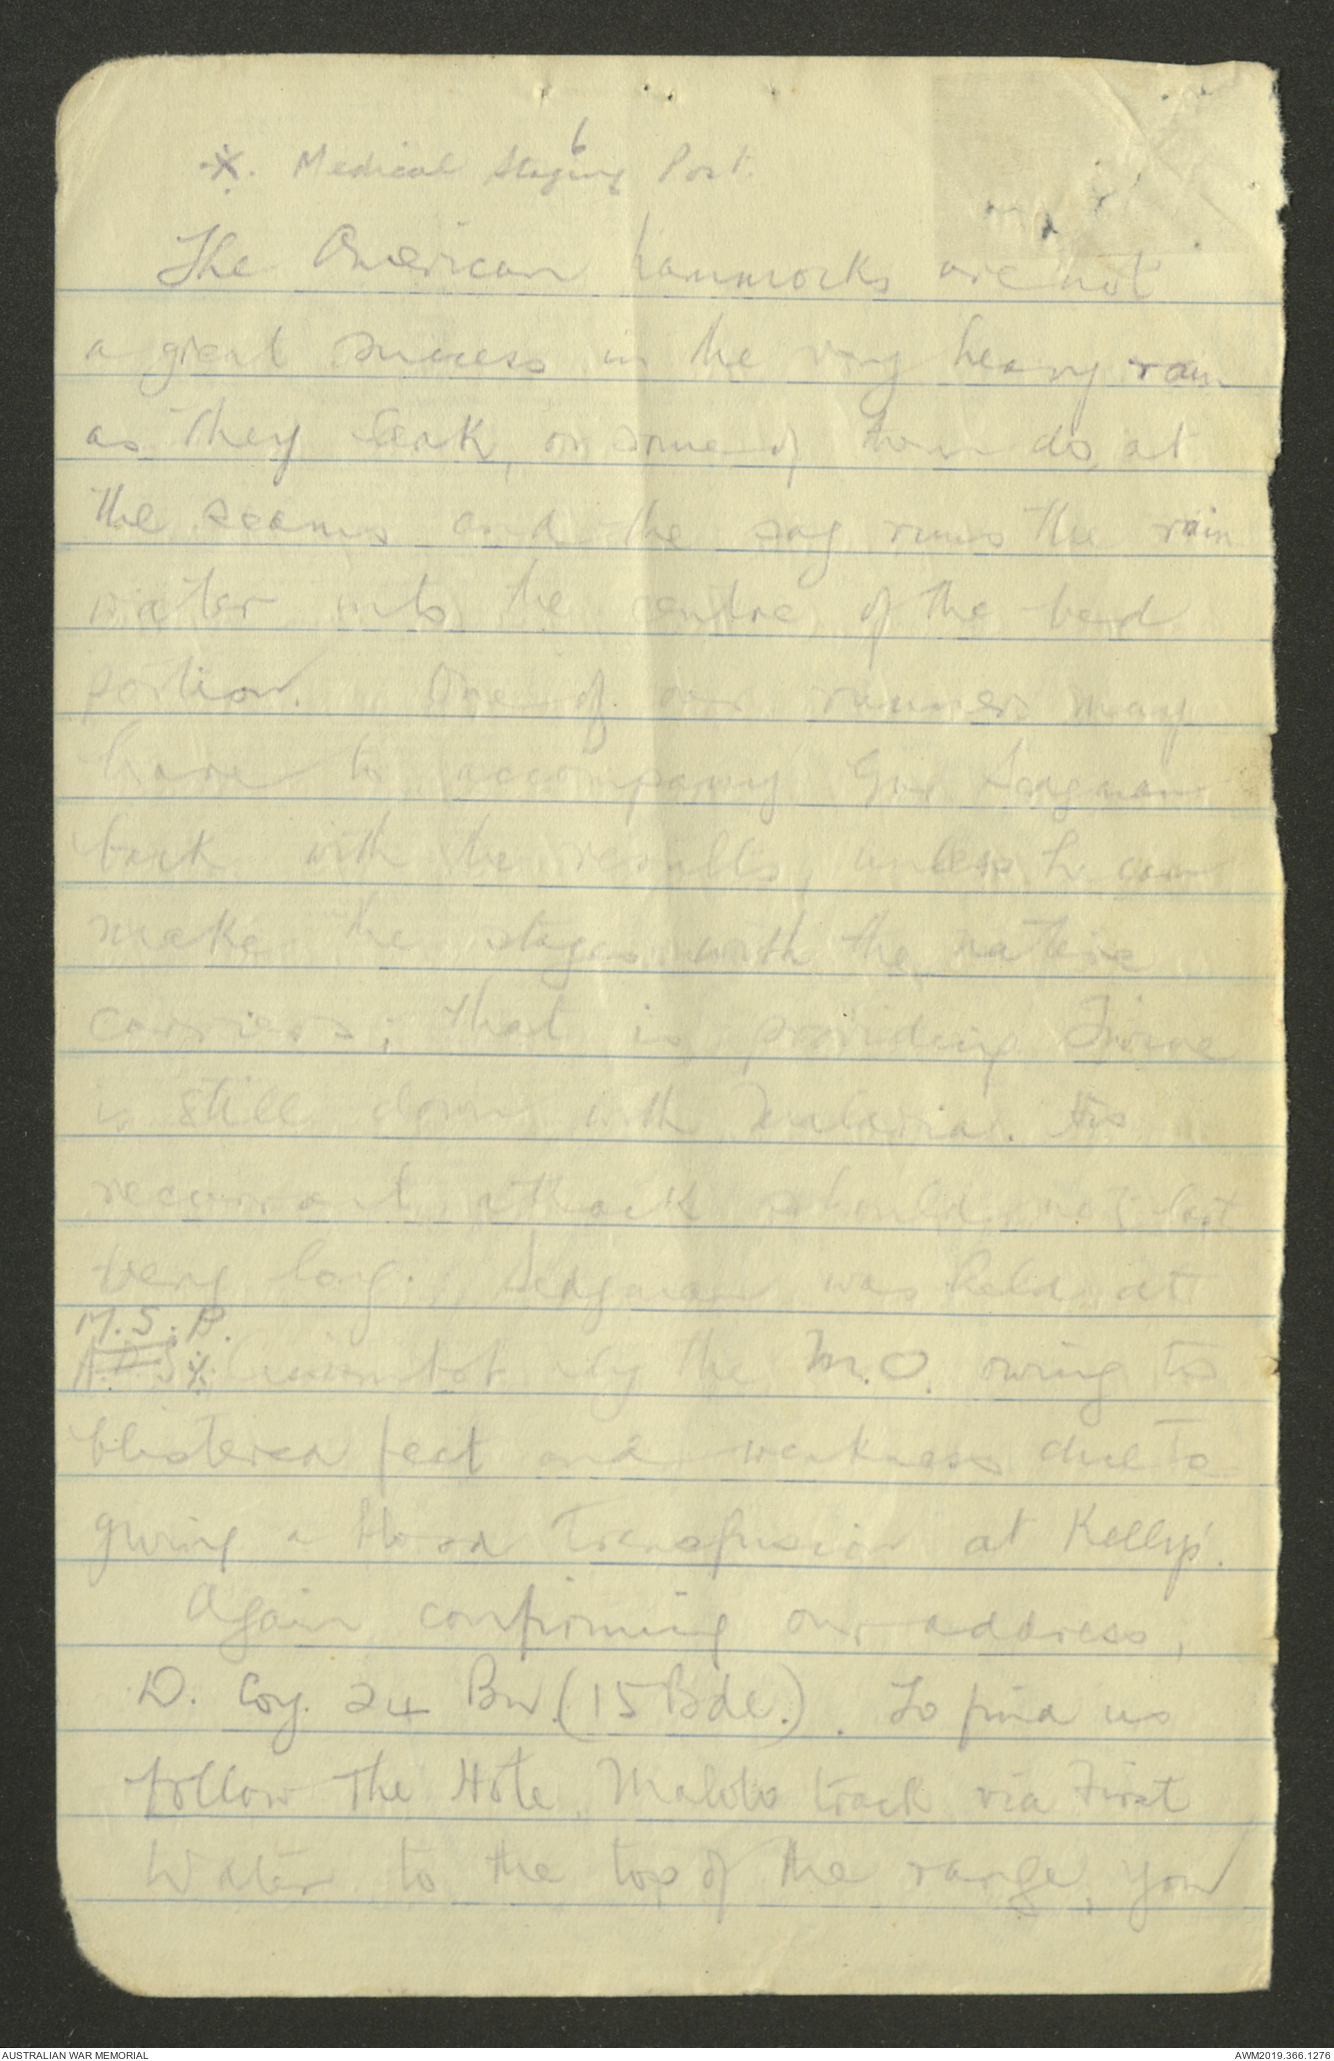 6
*. Medical Staging Post.
The American hammocks are not
a great success in the very heavy rain
as they leak, or some of them do, at
the seams and the sag runs the rain
water into the centre of the bed
portion. One of our runners may
have to accompany Gnr Sedgman
back with the results, unless he can
make the stages with the native
carriers; that is providing
is still down with malaria. His
recurrant attack should not last
very long. Sedgman was held at
M.S.P.
A.D.S* by the M.O. owing to
blistered feet and weakness due to
giving a blood transfusion at Kelly's.
Again confirming our address,
D. Coy. 24 Bn.(15 Bde.). To find us
follow the Hote, Malolo track via First
Water to the top of the range, you
AUSTRALIAN WAR MEMORIAL
AWM2019.366.1276